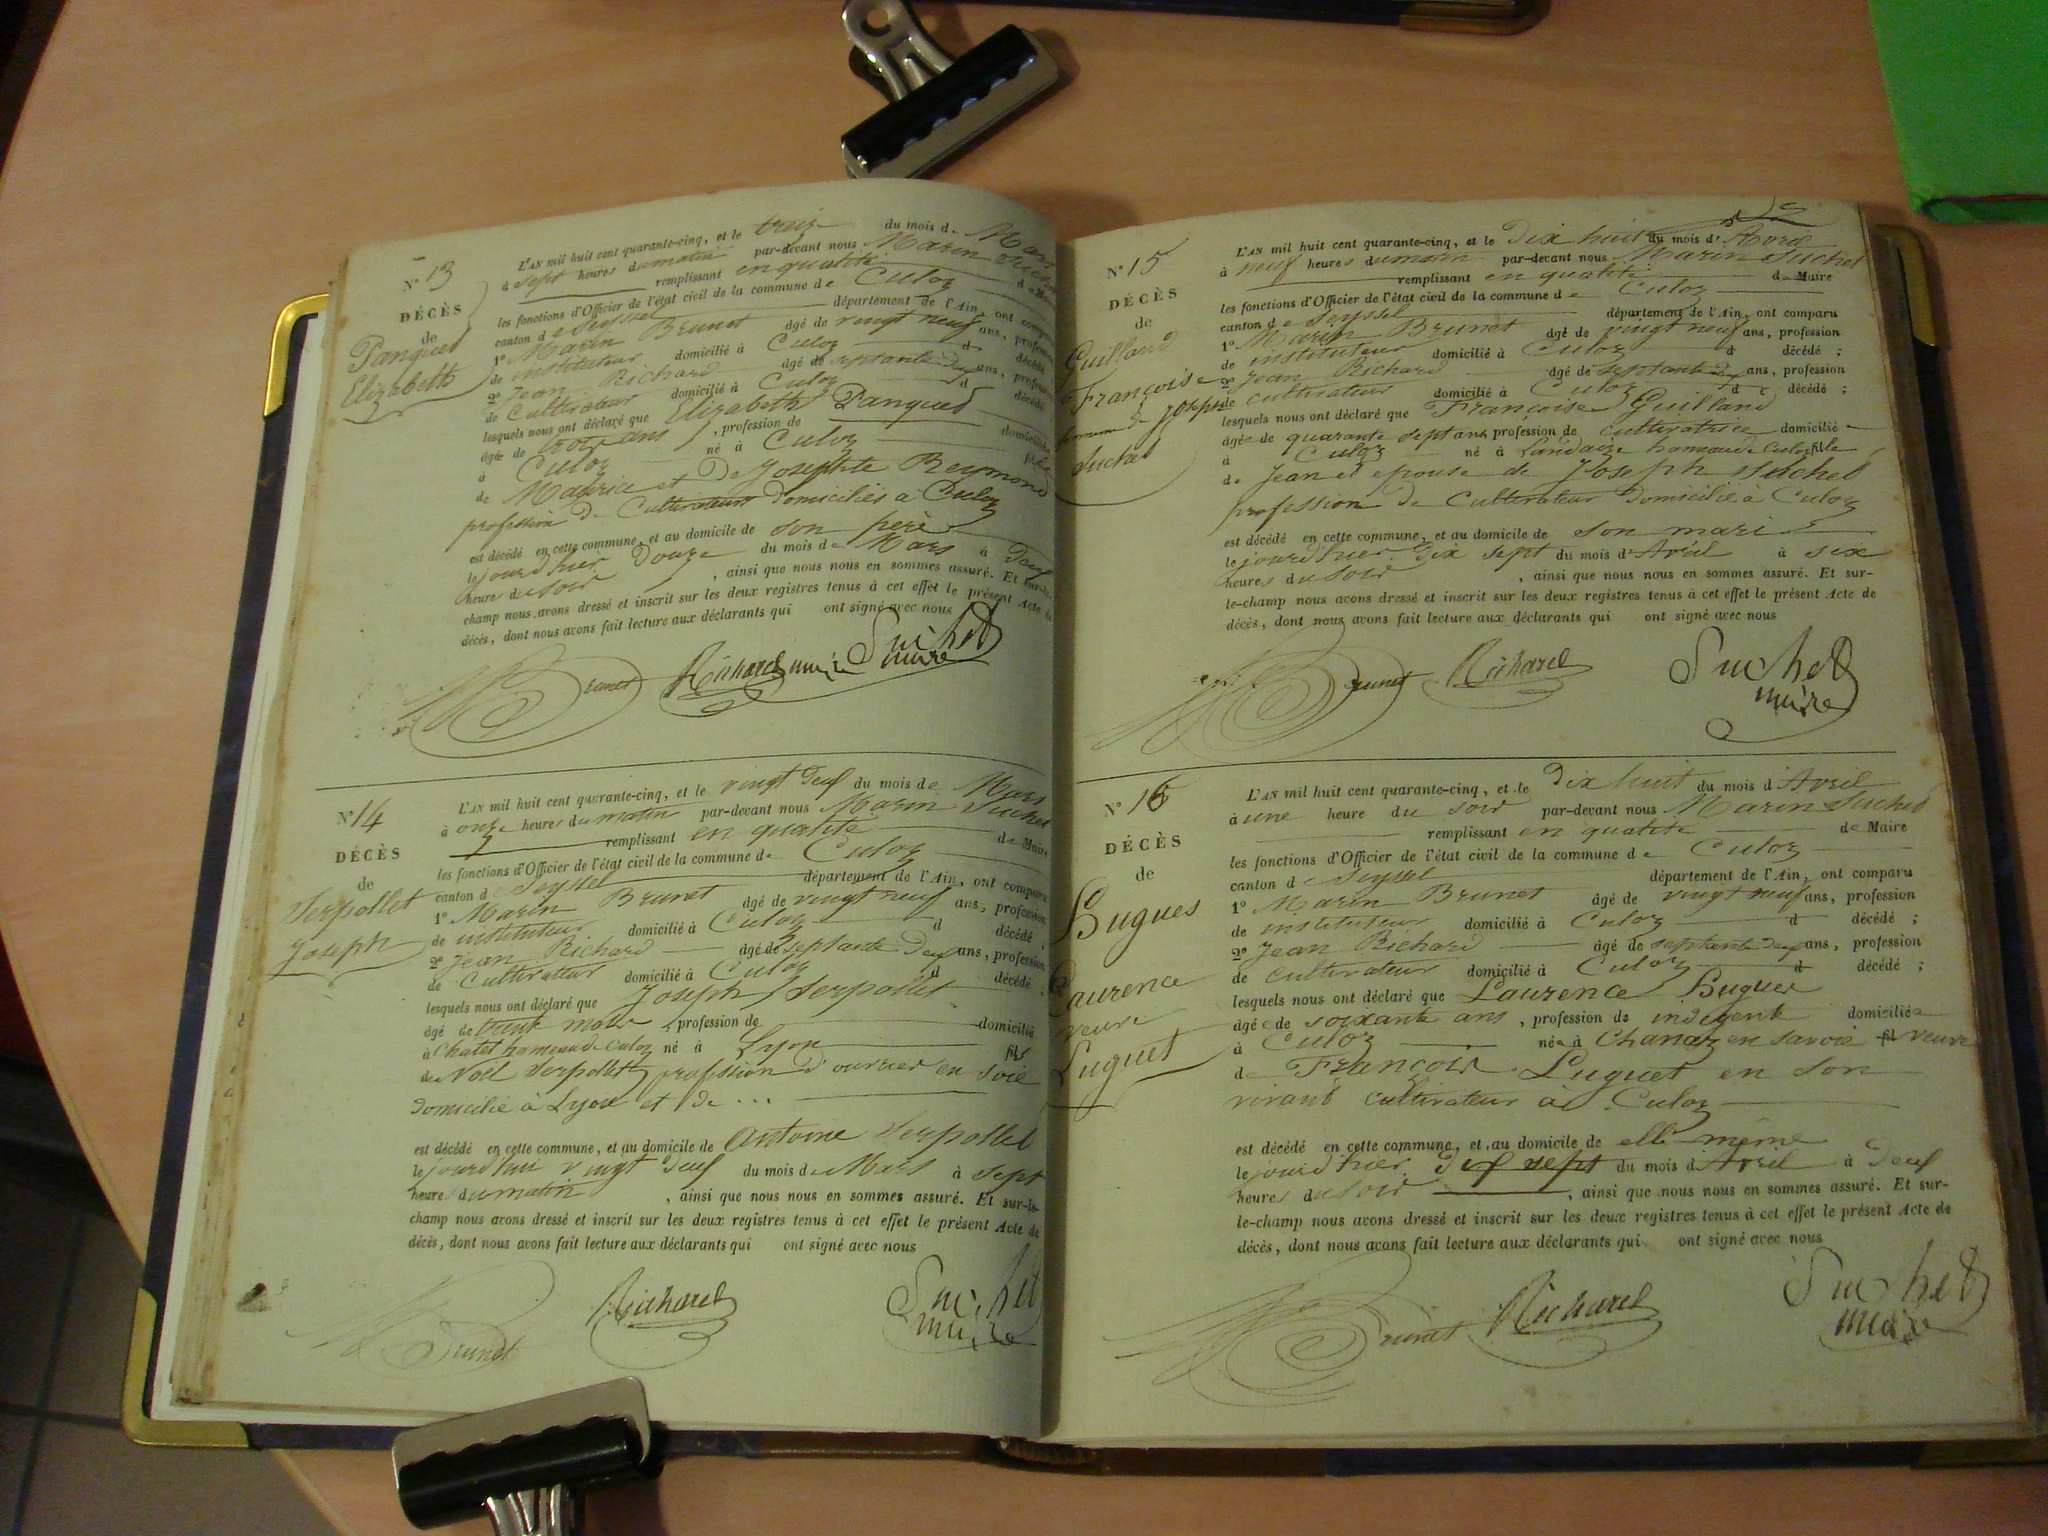 N° 13
DÉCÈS
de
Panquet
Elizabeth
L'AN mil huit cent quarante-cinq, et le treize du mois de Mars
à sept heures du matin par-devant nous Marin
remplissant en qualité de Maire
les fonctions d'Officier de l'état civil de la commune de Culoz
canton de Seyssel département de l'Ain, ont comparu
1° Marin Brunet âgé de vingt neuf ans, profession
de instituteur domicilié à Culoz d décédé
2° Jean Richard âgé de septante deux ans, profession
de Cultivateur domicilié à Culoz d décédé
lesquels nous ont déclaré que Elizabeth Panquet
âgée de trois ans , profession de domiciliée
à Culoz né à Culoz fille
de Maurice et De Josephte Reymond
profession de Cultivateurs domiciliés à Culoz
est décédé en cette commune, et au domicile de son père
le jourd'hier douze du mois de Mars à deux
heures du soir , ainsi que nous nous en sommes assuré. Et sur-le-
champ nous avons dressé et inscrit sur les deux registres tenus à cet effet le présent Acte de
décès, dont nous avons fait lecture aux déclarants qui ont signé avec nous
Brunet Richard Suchet
maire
N° 14
DÉCÈS
de
Serpollet
Joseph
L'AN mil huit cent quarante-cinq, et le vingt deux du mois de Mars
à onze heures du matin par-devant nous Marin Suchet
remplissant en qualité de Maire
les fonctions d'Officier de l'état civil de la commune de Culoz
canton de Seyssel département de l'Ain, ont comparu
1° Marin Brunet âgé de vingt neuf ans, profession
de instituteur domicilié à Culoz d décédé ;
2° Jean Richard âgé de septante deux ans, profession
de Cultivateur domicilié à Culoz d décédé ;
lesquels nous ont déclaré que Joseph Serpollet
âgé de trente mois , profession de domicilié
à Chatel hameau de Culoz né à Lyon fils
de Noël Serpollet profession d'ouvrier en soie
domicilié à Lyon et de ...
est décédé en cette commune, et au domicile de Antoine Serpollet
le jourd'hui vingt deux du mois de Mars à sept
heures du matin , ainsi que nous nous en sommes assuré. Et sur-le-
champ nous avons dressé et inscrit sur les deux registres tenus à cet effet le présent Acte de
décès, dont nous avons fait lecture aux déclarants qui ont signé avec nous
Brunet Richard Suchet
maire
N° 15
DÉCÈS
de
Guilland
Françoise
femme de Joseph
Suchet
L'AN mil huit cent quarante-cinq, et le Dix huit du mois d'Avril
à neuf heures du matin par-devant nous Marin Suchet
remplissant en qualité de Maire
les fonctions d'Officier de l'état civil de la commune de Culoz
canton de Seyssel département de l'Ain, ont comparu
1° Marin Brunet âgé de vingt neuf ans, profession
de instituteur domicilié à Culoz d décédé ;
2° Jean Richard âgé de septante deux ans, profession
de cultivateur domicilié à Culoz d décédé ;
lesquels nous ont déclaré que Françoise Guilland
âgée de quarante sept ans profession de cultivatrice domiciliée
à Culoz né à Landaize hameau de Culoz fille
de Jean et epouse de Joseph Suchet
profession de Cultivateur domicilié à Culoz
est décédé en cette commune, et au domicile de son mari
le jourd'hier dix sept du mois d'Avril à six
heures du soir , ainsi que nous nous en sommes assuré. Et sur-
le-champ nous avons dressé et inscrit sur les deux registres tenus à cet effet le présent Acte de
décès, dont nous avons fait lecture aux déclarants qui ont signé avec nous
Brunet Richard Suchet
maire
N° 16
DÉCÈS
de
Hugues
Laurence
veuve
Luguet
L'AN mil huit cent quarante-cinq, et le Dix huit du mois d'Avril
à une heure du soir par-devant nous Marin Suchet
remplissant en qualité de Maire
les fonctions d'Officier de l'état civil de la commune de Culoz
canton de Seyssel département de l'Ain, ont comparu
1° Marin Brunet âgé de vingt neuf ans, profession
de instituteur domicilié à Culoz d décédé ;
2° Jean Richard âgé de septante deux ans, profession
de cultivateur domicilié à Culoz d décédé ;
lesquels nous ont déclaré que Laurence Hugues
âgé de soixante ans , profession de indigente domiciliée
à Culoz née à Chanaz en Savoie veuve
de François Luguet en son
vivant cultivateur à Culoz
est décédé en cette commune, et au domicile de elle même
le jourd'hier dix sept du mois d'Avril à deux
heures du soir , ainsi que nous nous en sommes assuré. Et sur-
le-champ nous avons dressé et inscrit sur les deux registres tenus à cet effet le présent Acte de
décès, dont nous avons fait lecture aux déclarants qui ont signé avec nous
Brunet Richard Suchet
maire